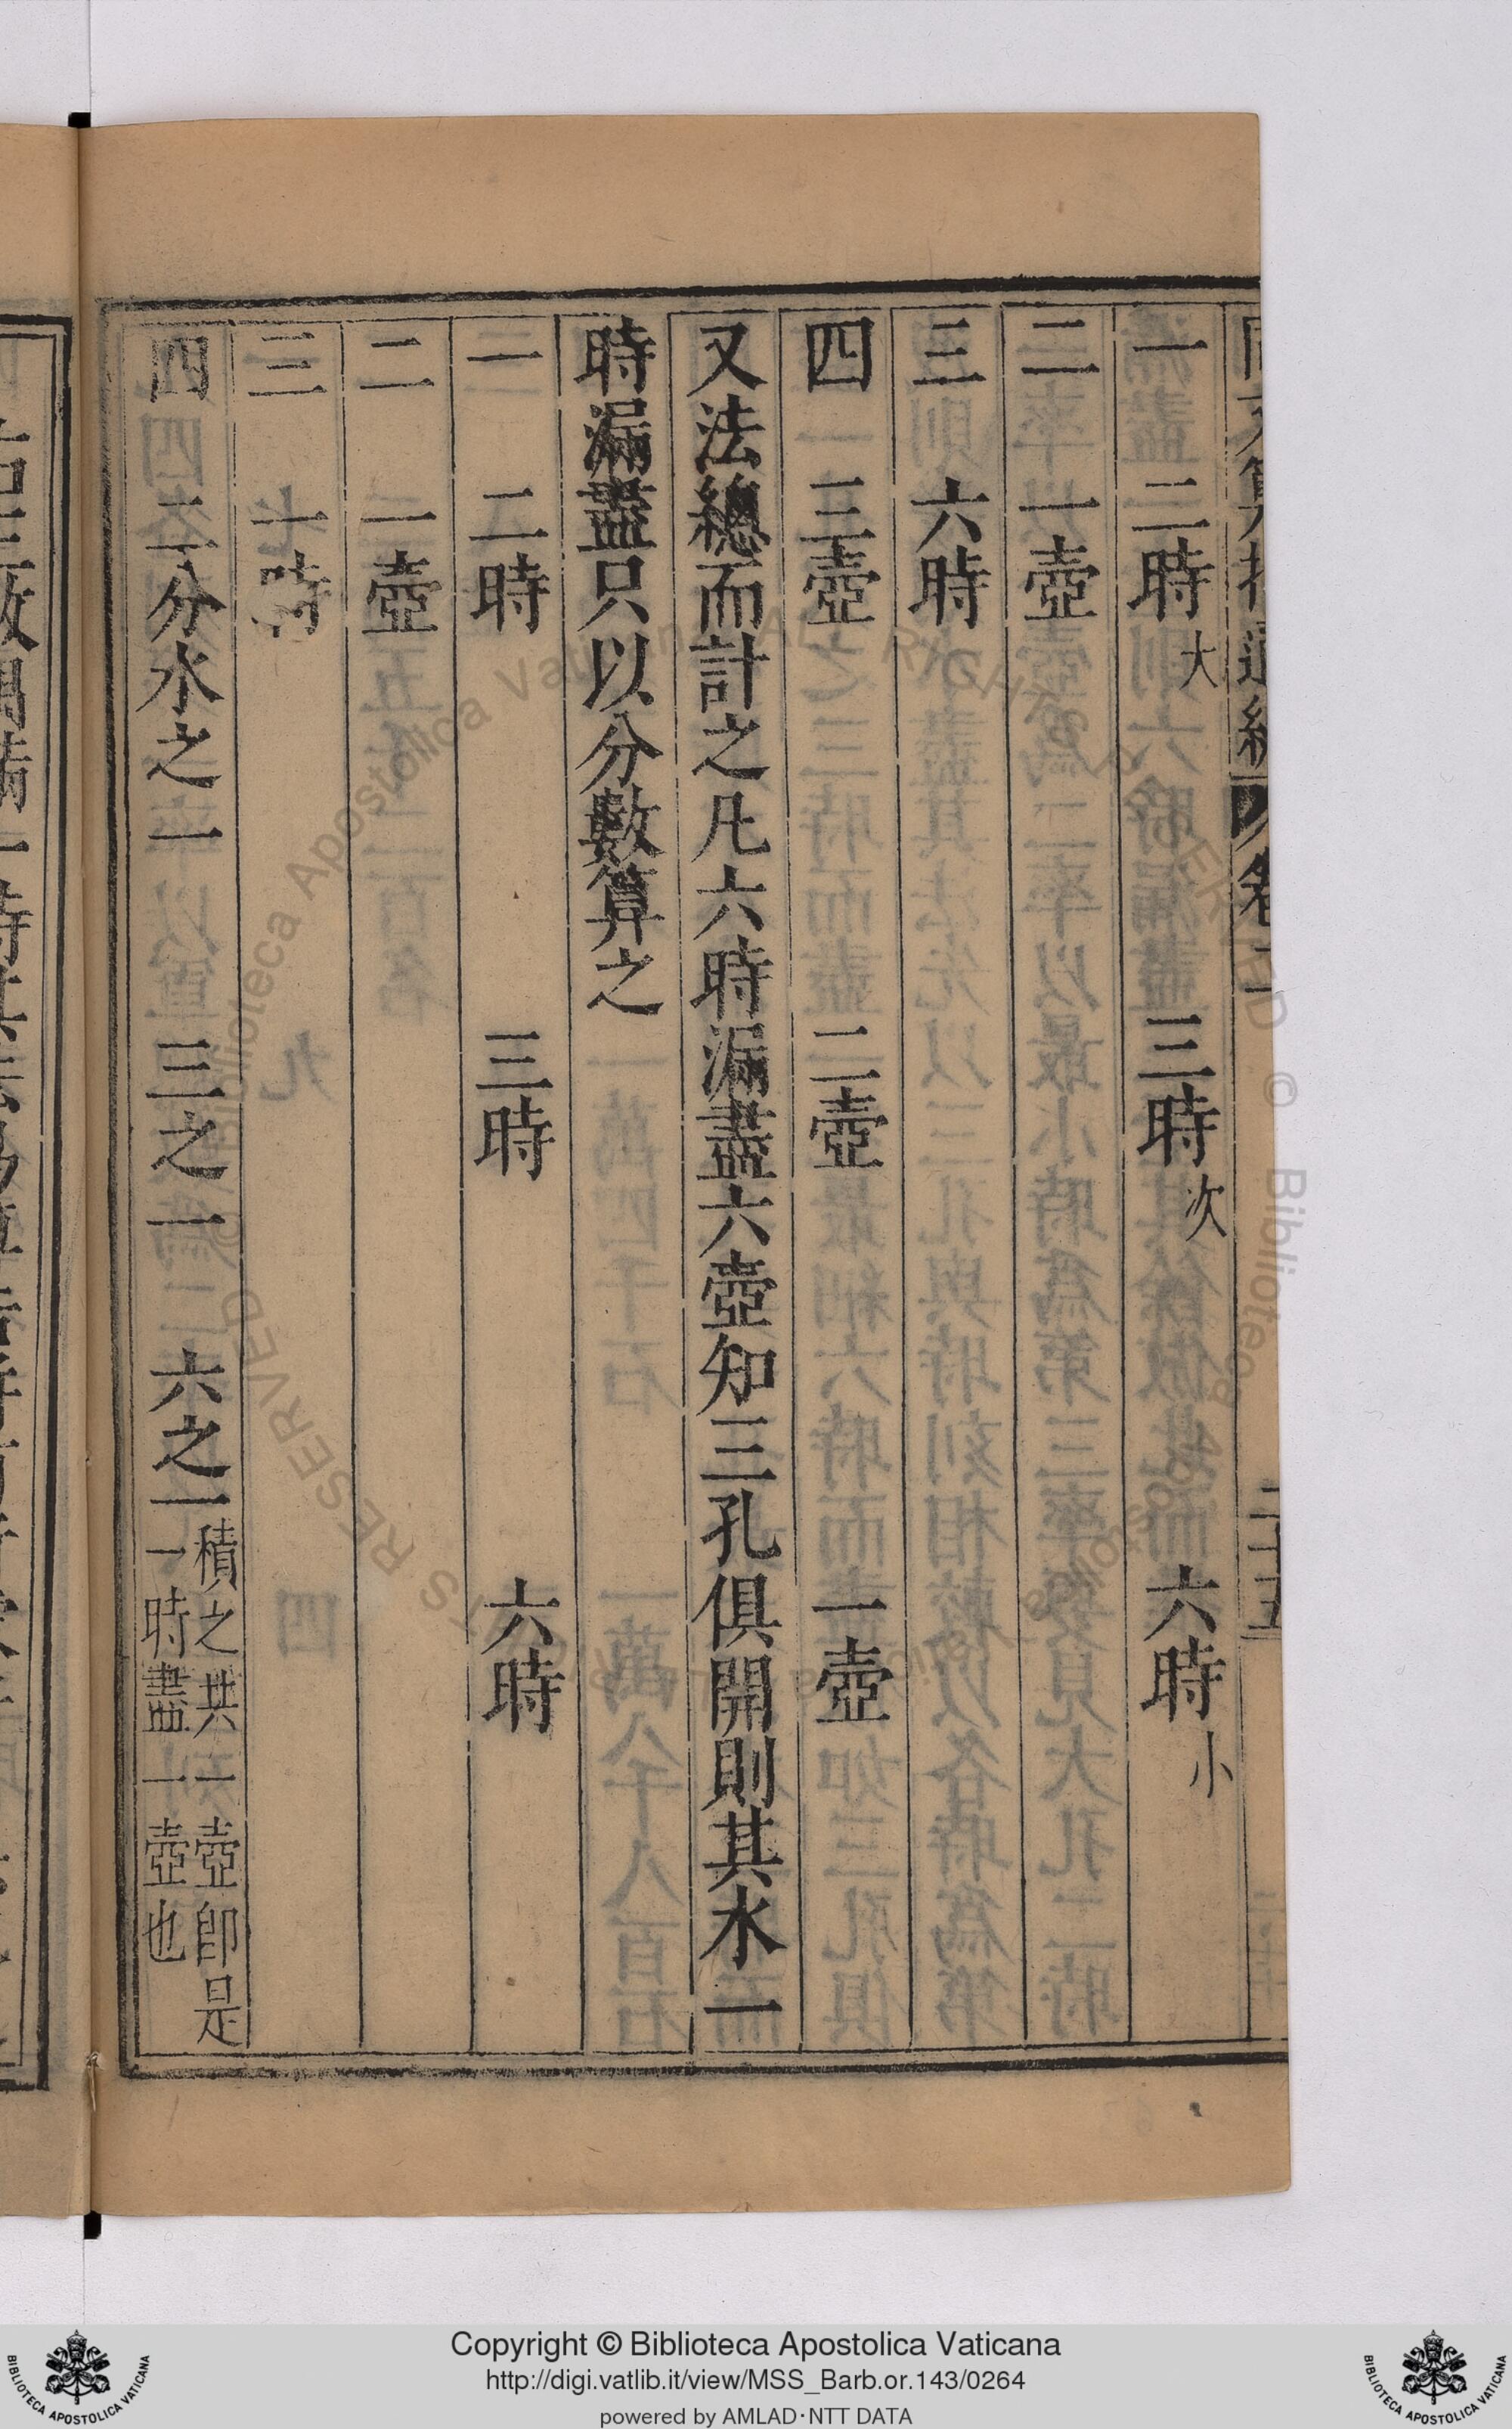 一 二時大 三時次 六時小
二 一壺
三 六時
四 三壺 二壺 一壺
又法總而計之凡六時漏盡六壺知三孔俱開則其水一
時漏盡只以分數算之
一 二時 三時 六時
二 一壺
三 一時
四 二分水之一 三之一 六之一積之共一壺卽是
一時盡一壺也
Copyright © Biblioteca Apostolica Vaticana
http://digi.vatlib.it/view/MSS_Barb.or.143/0264
powered by AMLAD·NTT DATA
BIBLIOTECA APOSTOLICA VATICANA
BIBLIOTECA APOSTOLICA VATICANA